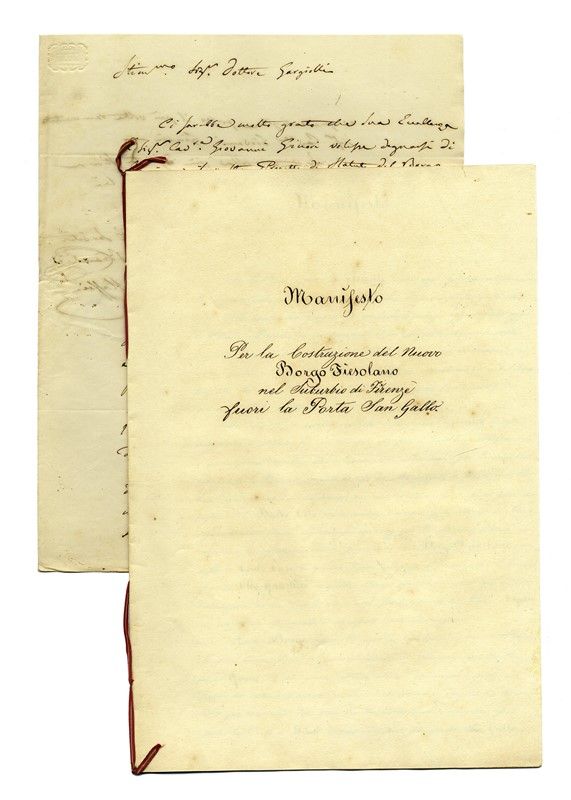 Stim.mo Sig.r Dottore Gargiolli
Ci sarebbe molto grato che Sua Eccellenza
Sig.r Cav.r Giovanni Ginori volesse degnarsi di
di Statuti del Borgo
Manifesto
Per la Costruzione del Nuovo
Borgo Fiesolano
nel Suburbio di Firenze
fuori la Porta San Gallo.